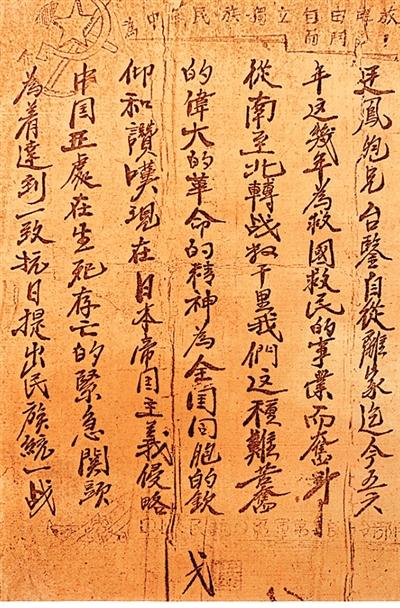 是鳳純兄台鑒自從離家迄今五六
年这幾年為救國救民的事業而奮斗
從南至北轉战数千里我們这種艱苦奮
的偉大的革命的精神為全国同胞的欽
仰和讚嘆現在日本帝国主義侵略
中国正處在生死存亡的緊急関頭
為着達到一致抗日提出民族統一战